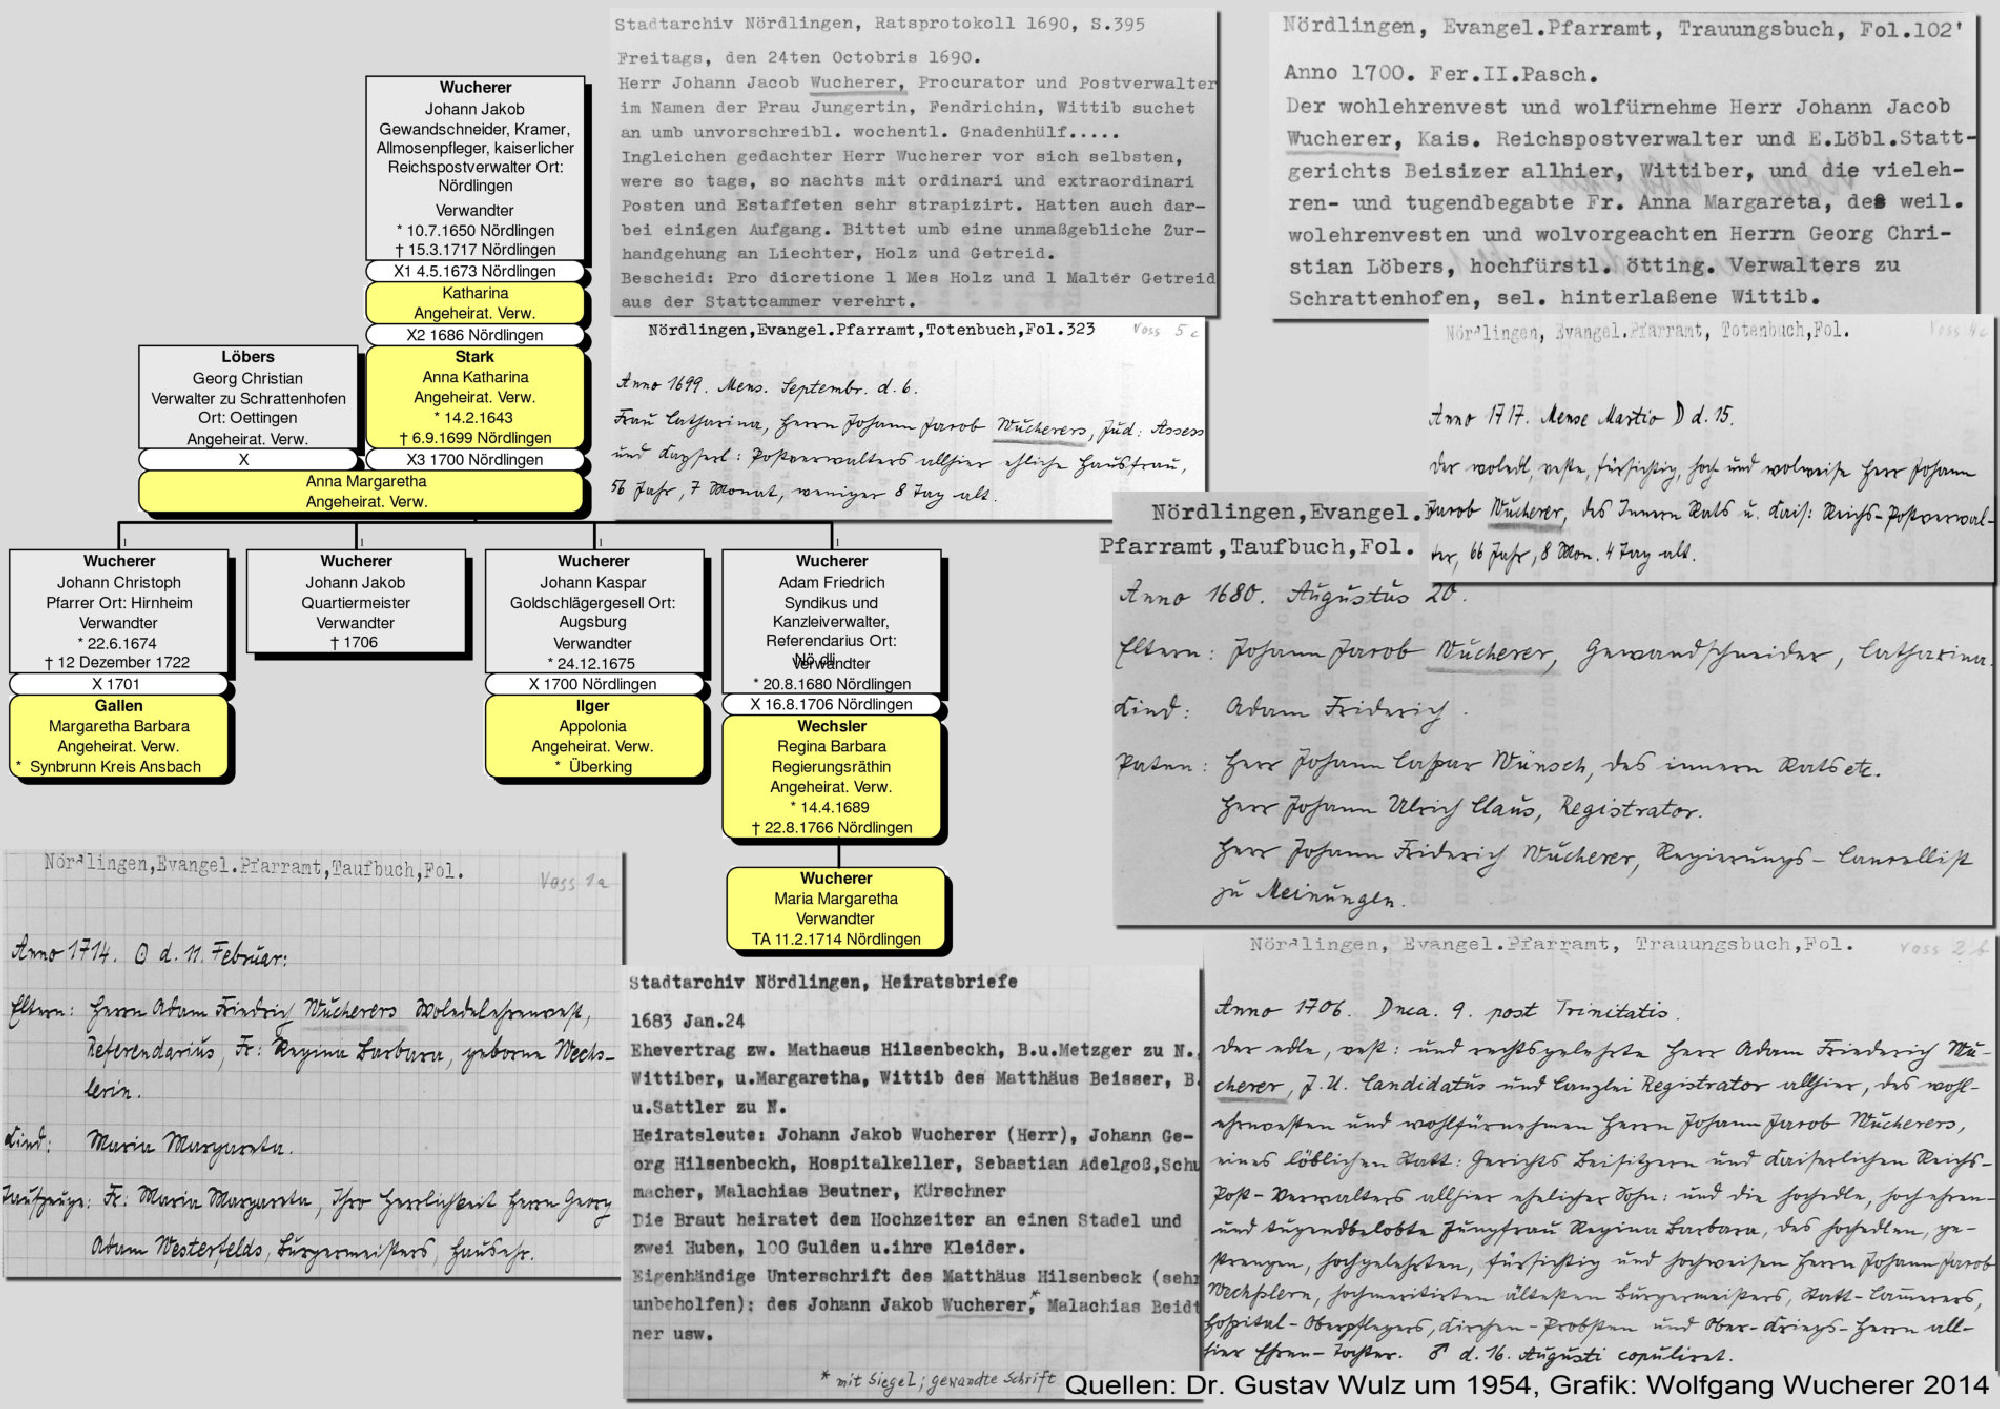 Wucherer
Johann Jakob
Gewandschneider, Kramer,
Allmosenpfleger, kaiserlicher
Reichspostverwalter Ort:
Nördlingen
Verwandter
* 10.7.1650 Nördlingen
† 15.3.1717 Nördlingen
X1 4.5.1673 Nördlingen
Katharina
Angeheirat. Verw.
X2 1686 Nördlingen
Stark
Anna Katharina
Angeheirat. Verw.
* 14.2.1643
† 6.9.1699 Nördlingen
X3 1700 Nördlingen
Löbers
Georg Christian
Verwalter zu Schrattenhofen
Ort: Oettingen
Angeheirat. Verw.
X
Anna Margaretha
Angeheirat. Verw.
Wucherer
Johann Christoph
Pfarrer Ort: Hirnheim
Verwandter
* 22.6.1674
† 12 Dezember 1722
X 1701
Gallen
Margaretha Barbara
Angeheirat. Verw.
* Synbrunn Kreis Ansbach
Wucherer
Johann Jakob
Quartiermeister
Verwandter
† 1706
Wucherer
Johann Kaspar
Goldschlägergesell Ort:
Augsburg
Verwandter
* 24.12.1675
X 1700 Nördlingen
Ilger
Appolonia
Angeheirat. Verw.
* Überking
Wucherer
Adam Friedrich
Syndikus und
Kanzleiverwalter,
Referendarius Ort:
Verwandter
* 20.8.1680 Nördlingen
X 16.8.1706 Nördlingen
Wechsler
Regina Barbara
Regierungsräthin
Angeheirat. Verw.
* 14.4.1689
† 22.8.1766 Nördlingen
Wucherer
Maria Margaretha
Verwandter
TA 11.2.1714 Nördlingen
Stadtarchiv Nördlingen, Ratsprotokoll 1690, S.395
Freitags, den 24ten Octobris 1690.
Herr Johann Jacob Wucherer, Procurator und Postverwalter
im Namen der Frau Jungertin, Fendrichin, Wittib suchet
an umb unvorschreibl. wochentl. Gnadenhülf.....
Ingleichen gedachter Herr Wucherer vor sich selbsten,
were so tags, so nachts mit ordinari und extraordinari
Posten und Estaffeten sehr strapizirt. Hatten auch dar-
bei einigen Aufgang. Bittet umb eine unmaßgebliche Zur-
handgehung an Liechter, Holz und Getreid.
Bescheid: Pro dicretione 1 Mes Holz und 1 Malter Getreid
aus der Stattcammer verehrt.
Nördlingen,Evangel.Pfarramt,Totenbuch,Fol.323
Voss 5c
Anno 1699. Mens. Septembr. d. 6.
Frau Catharina, Herrn Johann Jacob Wucherers, Jud: Assess
und Kayserl: Postverwalters allhier ehliche Hausfrau,
56 Jahr, 7 Monat, weniger 8 Tag alt.
Nördlingen, Evangel.Pfarramt, Trauungsbuch, Fol.102'
Anno 1700. Fer.II.Pasch.
Der wohlehrenvest und wolfürnehme Herr Johann Jacob
Wucherer, Kais. Reichspostverwalter und E.Löbl.Statt-
gerichts Beisizer allhier, Wittiber, und die vieleh-
ren- und tugendbegabte Fr. Anna Margareta, des weil.
wolehrenvesten und wolvorgeachten Herrn Georg Chri-
stian Löbers, hochfürstl. ötting. Verwalters zu
Schrattenhofen, sel. hinterlaßene Wittib.
Nördlingen, Evangel.Pfarramt, Totenbuch,Fol.
Voss 4c
Anno 1717. Mense Martio D d. 15.
der woledl, veste, fürsichtig, hoch und wolweise Herr Johann
Jacob Wucherer, des Innern Rats u. Kais: Reichs-Postverwal-
ter, 66 Jahr, 8 Mon. 4 Tag alt.
Nördlingen,Evangel.
Pfarramt,Taufbuch,Fol.
Anno 1680. Augustus 20.
Eltern: Johann Jacob Wucherer, Gewandschneider, Catharina.
Kind: Adam Friderich.
Paten: Herr Johann Caspar Wünsch, des innern Rats etc.
Herr Johann Ulrich Claus, Registrator.
Herr Johann Friderich Wucherer, Regierungs-Cancellist
zu Meinungen.
Nördlingen,Evangel.Pfarramt,Taufbuch,Fol.
Voss 1a
Anno 1714. ⊙ d. 11. Februar:
Eltern: Herrn Adam Friedrich Wucherers Woledelehrenvest,
Referendarius, Fr: Regina Barbara, geborne Wechs-
lerin.
Kind: Maria Margareta.
Taufzeuge: Fr: Maria Margareta, Ihro Herrlichkeit Herrn Georg
Adam Westerfelds, Burgermeisters, Hausehr.
Stadtarchiv Nördlingen, Heiratsbriefe
1683 Jan.24
Ehevertrag zw. Mathaeus Hilsenbeckh, B.u.Metzger zu N.
Wittiber, u.Margaretha, Wittib des Matthäus Beisser, B.
u.Sattler zu N.
Heiratsleute: Johann Jakob Wucherer (Herr), Johann Ge-
org Hilsenbeckh, Hospitalkeller, Sebastian Adelgoß,Schu
macher, Malachias Beutner, Kürschner
Die Braut heiratet dem Hochzeiter an einen Stadel und
zwei Huben, 100 Gulden u.ihre Kleider.
Eigenhändige Unterschrift des Matthäus Hilsenbeck (sehr
unbeholfen): des Johann Jakob Wucherer,* Malachias Beidt
ner usw.
* mit Siegel; gewandte Schrift
Nördlingen, Evangel.Pfarramt, Trauungsbuch,Fol.
Voss 2b
Anno 1706. Dnca. 9. post Trinitatis.
der edle, vest: und rechtsgelehrte Herr Adam Friederich Wu-
cherer, J.U. Candidatus und Canzlei Registrator allhier, des wohl-
ehrnvesten und wohlfürnehmen Herrn Johann Jacob Wucherers,
eines löblichen Statt: Gerichts Beisitzern und Kaiserlichen Reichs-
Post-Verwalters allhier ehelicher Sohn: und die hochedle, hochehren-
und tugendbelobte Jungfrau Regina Barbara, des hochedlen, ge-
strengen, hochgelehrten, fürsichtig und hochweisen Herrn Johann Jacob
Wechßlern, hochmeritirten ältesten Burgermeisters, Statt-Camerers,
Hospital-Oberpflegers, Kirchen-Probsten und Ober-Kriegs-Herrn all-
hier Ehren-Tochter. ♂ d. 16. Augusti copuliret.
Quellen: Dr. Gustav Wulz um 1954, Grafik: Wolfgang Wucherer 2014